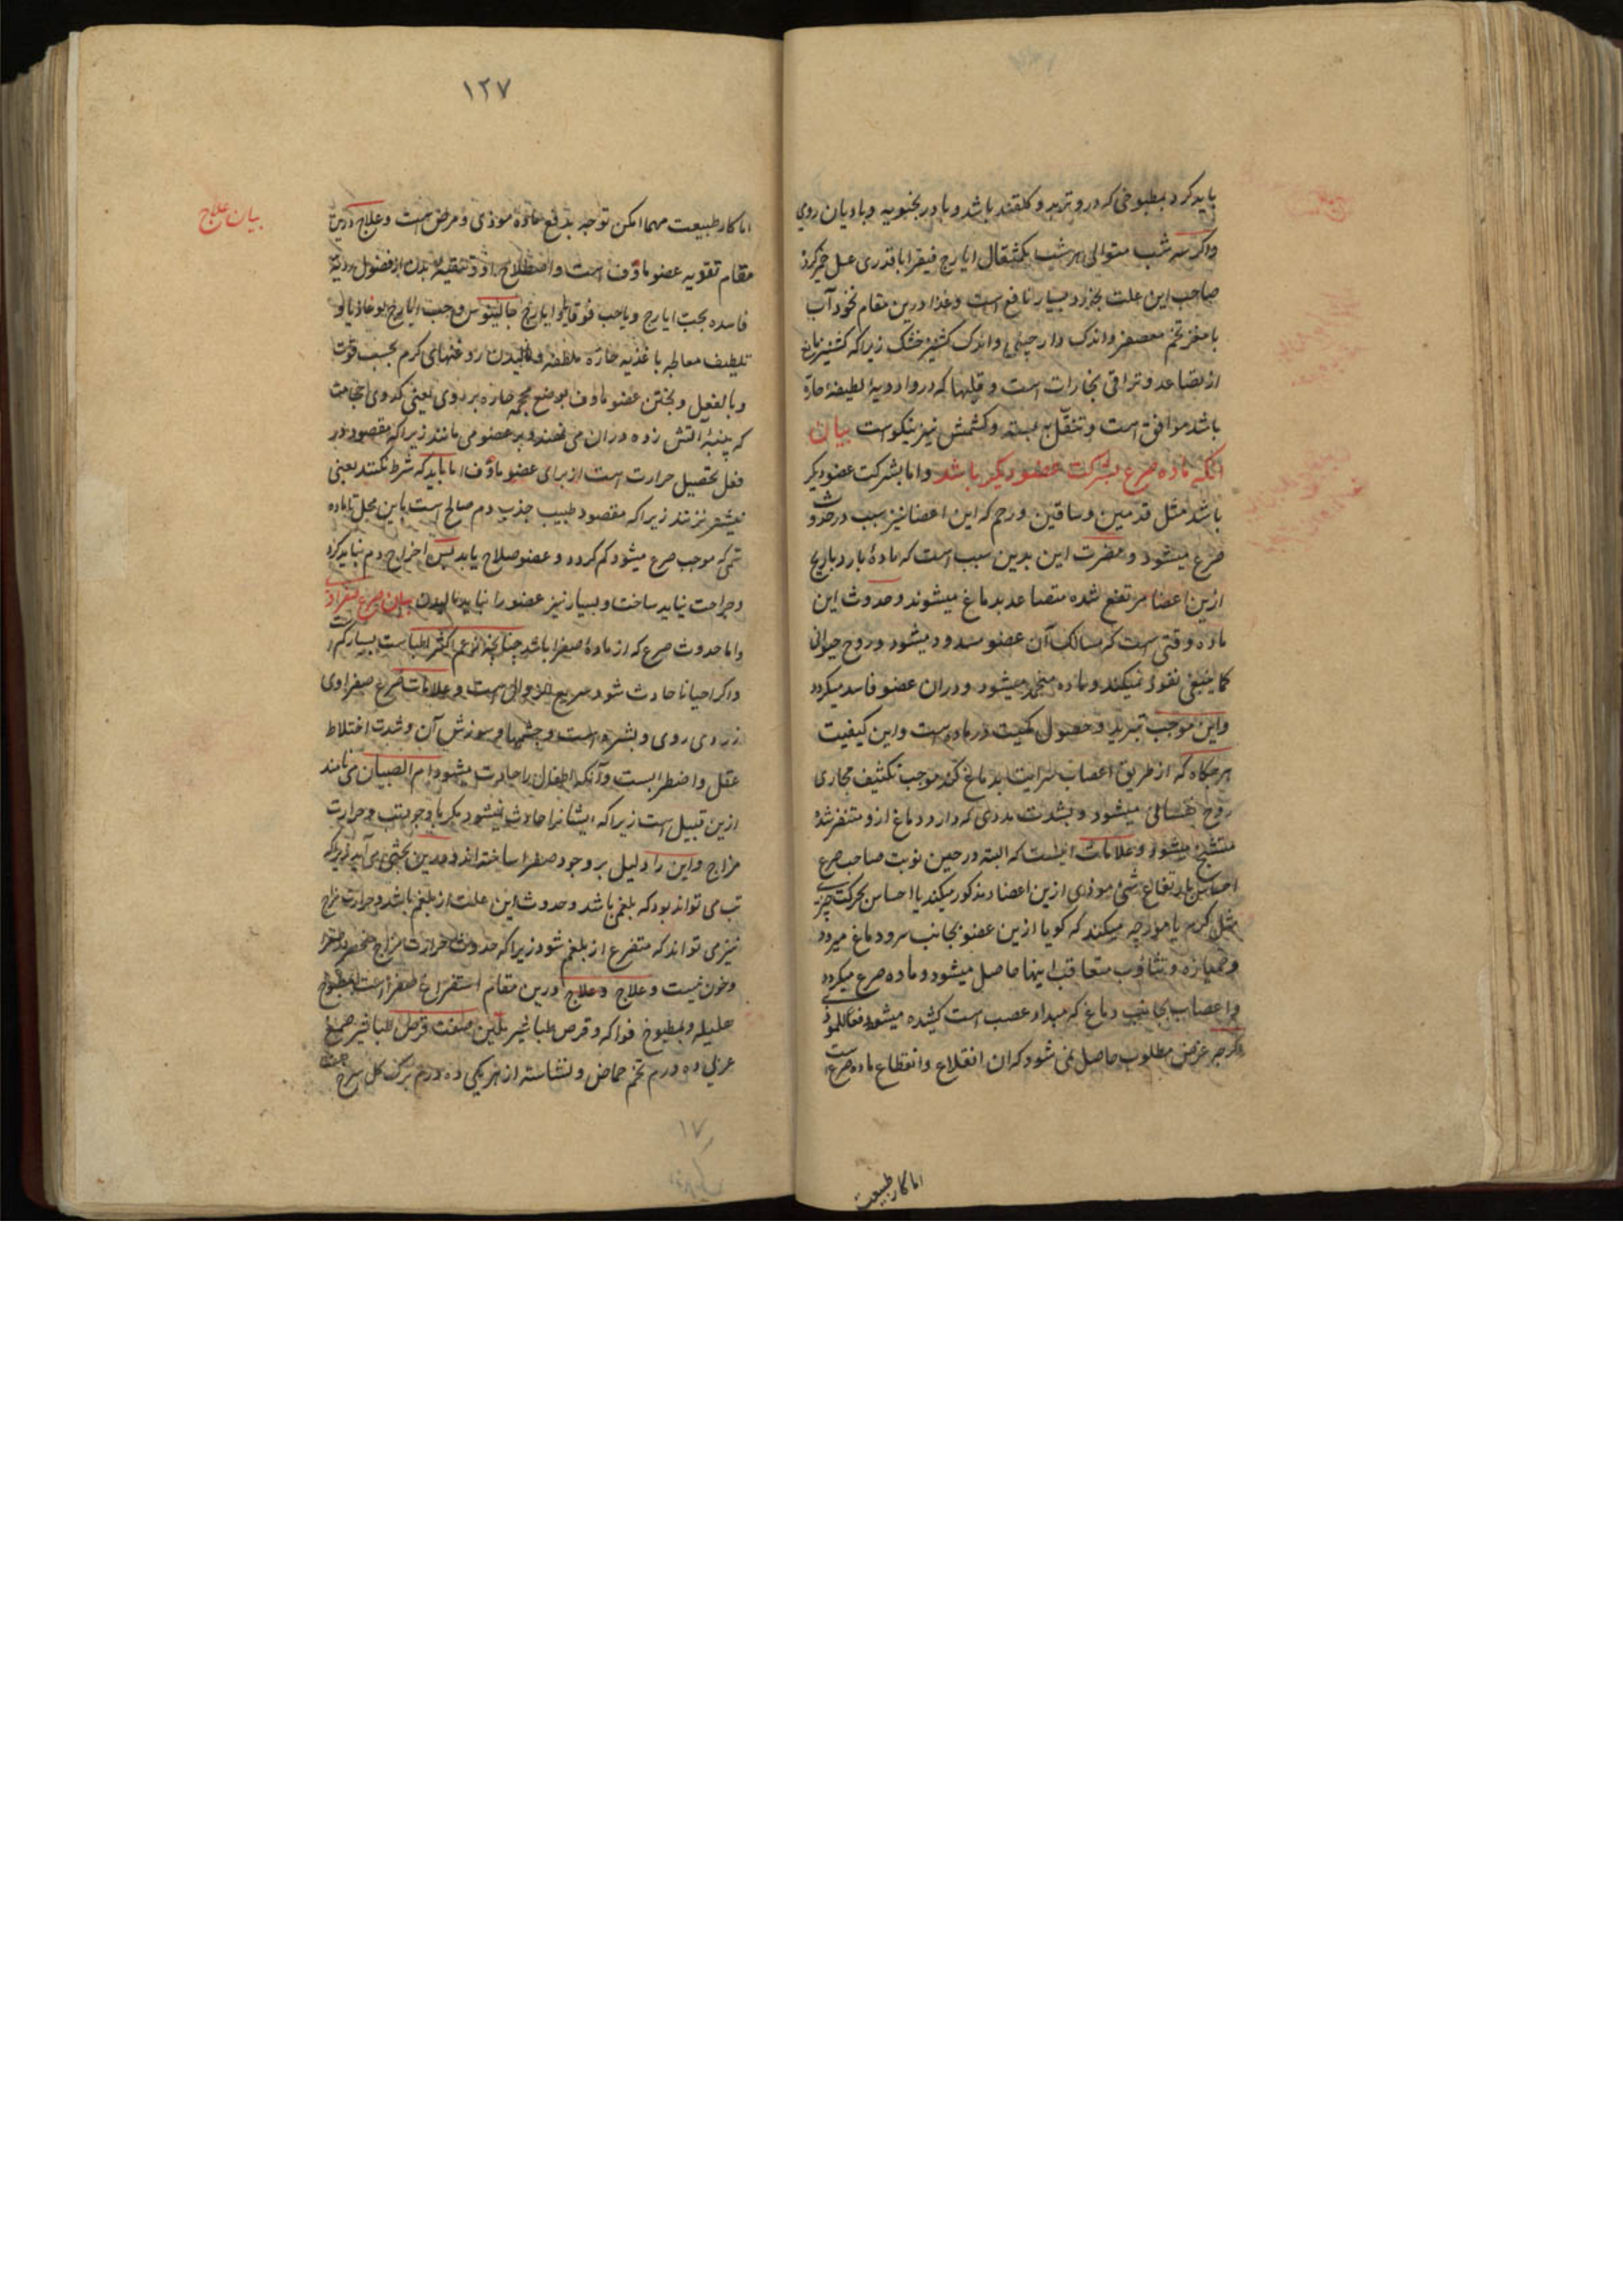 باید کرد بمطبوخی که درو تربد و کلقند باشد و بادرنجبویه و بادیان رومی
واکر سه شب متوالی هر شب یکمثقال ایارج فیقرا باقدری عسل خمیر کرده
صاحب این علت بخورد بسیار نافع است وغذا درین مقام نخودآب
با مغز تخم معصفر واندک دارچینی واندک کشنیز خشک زیراکه کشنیز مانع
از تصاعد و تراقی بخارات است و قلیها که درو ادویهٔ لطیفهٔ حاره
باشد موافق است و تنقل به پسته و کشمش نیز نیکوست بیان
آنکه ماده صرع بشرکت عضو دیکر باشد واما بشرکت عضو دیکر
باشد مثل قدمین و ساقین و رحم که این اعضا نیز سبب در حدوث
صرع میشود و مضرت این بدین سبب است که مادهٔ بارد یا ریح
ازین اعضا مرتفع شده متصاعد بدماغ میشوند وحدوث این
ماده وقتی است که مسالک آن عضو مسدود میشود و روح حیوانی
کما ینبغی نفوذ نمیکند و ماده منجمد میشود و دران عضو فاسد میکردد
واین موجب تبرید و حصول کیفیت در ماده است واین کیفیت
هرجکاه که از طریق اعصاب سرایت بدماغ کند موجب تکثیف مجاری
روح نفسانی میشود و بشدت بردی که دارد دماغ ازو متنفر شده
متشنج میشود وعلامات اینست که البته در حین نوبت صاحب صرع
احساس بارتفاع شئ موذی ازین اعضاء مذکور میکند یا احساس بحرکت چیزی
مثل کرم یا مورچه میکند که کویا ازین عضو بجانب سر و دماغ میرود
وخمیازه و تثاوب متعاقب اینها حاصل میشود و ماده صرع میکردد
واعصاب بجانب دماغ که مبداء عصب است کشیده میشود دفعا للموذی
اکرچه غرض مطلوب حاصل نمی شود که ان انقلاع وانقطاع ماده صرع است
اما کار طبیعت
۱۲۷
بیان علاج
اما کار طبیعت مهما امکن توجه بدفع ماده موذی ومرض است وعلاج درین
مقام تقویه عضو ماؤف است واصطلاح او و تنقیه بدن از فضول ردیه
فاسده بحب ایارج ویا حب قوقایا و ایارج جالینوس و حب ایارج لوغاذیا و
تلطیف معاطبه باغذیه حاره ملطفه و مالیدن روغنهای کرم بحسب قوت
وبالفعل وبختن عضو ماؤف بوضع محجمه حاره بر روی یعنی کدوی حجامت
که پنبهٔ آتش زده دران می نهند و بر عضو می مانند زیراکه مقصود در
فعل تحصیل حرارت است از برای عضو ماؤف اما باید که شرط نکنند یعنی
نیشتر نزنند زیراکه مقصود طبیب جذب دم صالح است باین محل تا ماده
سمی که موجب صرع میشود کم کردد و عضو صلاح یابد پس اخراج دم نباید کرد
وجراحت نباید ساخت و بسیار نیز عضو را نباید مالیدن بیان صرع صفراوی
واما حدوث صرع که از مادهٔ صفرا باشد چنانچه زعم اکثر اطباست بسیار کم است
واکر احیانا حادث شود سریع الزوال است وعلامات صرع صفراوی
زردی روی وبشره است وچشمها و سوزش آن و شدت اختلاط
عقل واضطرابست وآنکه اطفال را حادث میشود و ام الصبیان می نامند
ازین قبیل است زیراکه ایشانرا حادث نمیشود مکر با وجود تب وحرارت
مزاج واین را دلیل بر وجود صفرا ساخته اند و درین بحثی می آید زیراکه
تب می تواند بود که بلغمی باشد و حدوث این علت از بلغم باشد و حرارت مزاج
نیز می تواند که متفرع از بلغم شود زیراکه حدوث حرارت مزاج منحصر در صفرا
وخون نیست وعلاج وعلاج درین مقام استفراغ صفرا است بمطبوخ
هلیله و مطبوخ فواکه و قرص طباشیر ملین صفت قرص طباشیر صمغ
عربی ده درم تخم حماض و نشاسته از هر یکی ده درم برک کل سرخ
۱۷